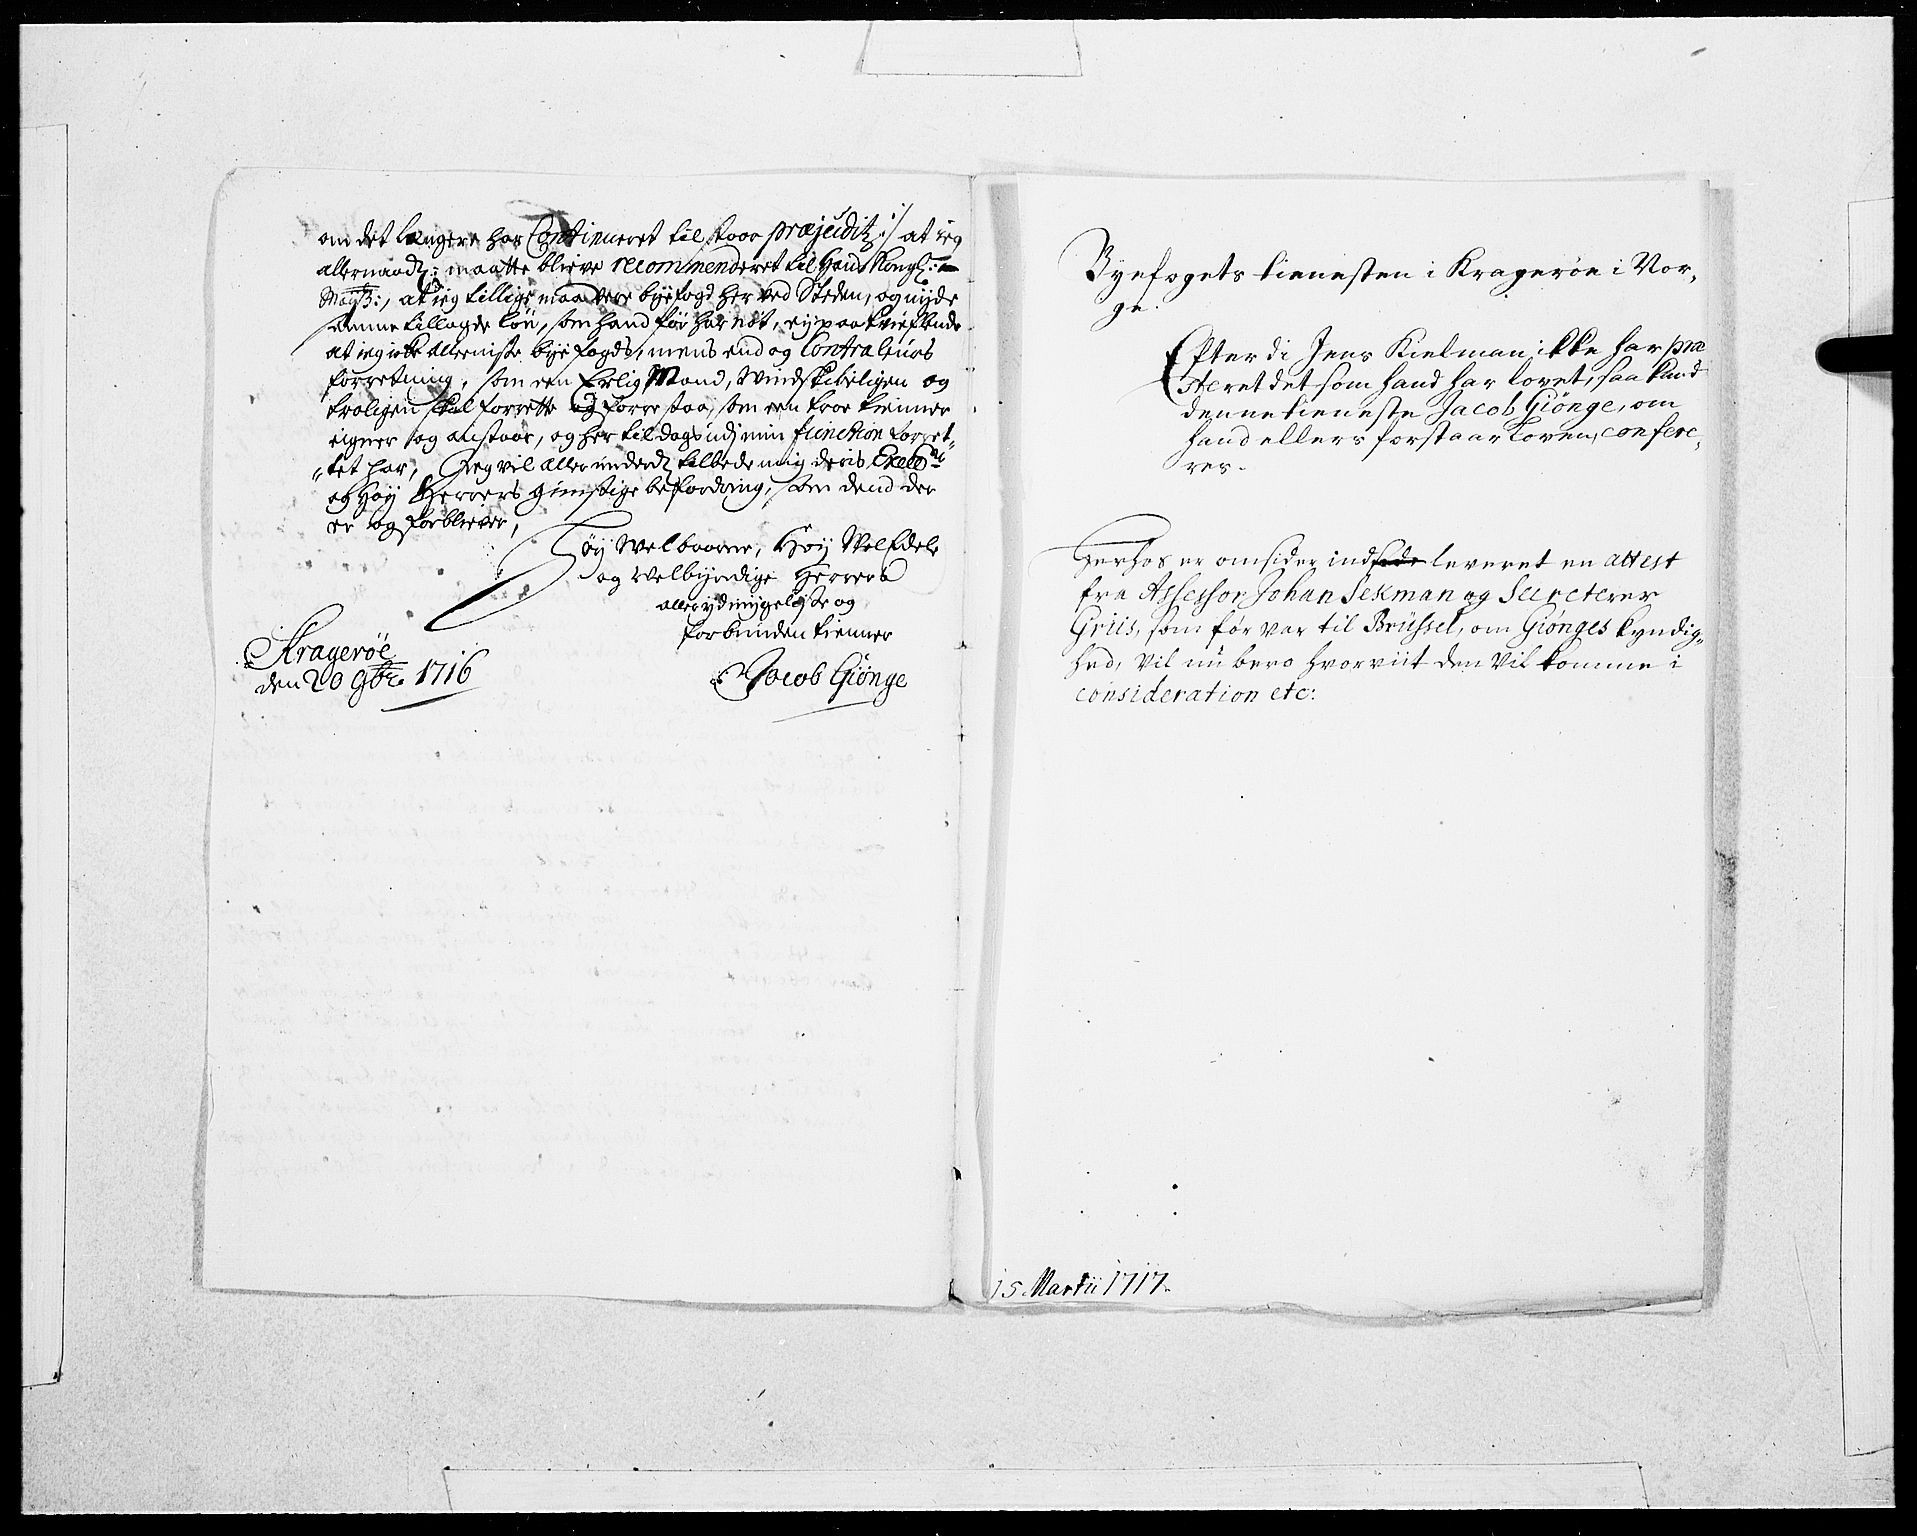 om det længere har Contineret til stoor præjuditz :/ at ieg
allernaadl: maatte blieve recommenderet til Hans Kongl:
Mayts:, at ieg tillige maa vere byefogd her ved Steden, og nyde
samme tillagde løn, som hand før har nøt, ey paatvieflende
at ieg icke alleniste byefogds, mens end og Contraleurs
forretning, som een Erlig Mand, Windskibeligen og
troligen skal forrette og forrestaa, som een troe tienner
eigner og anstaar, og her til dags udj min function forret-
-tet har, Jeg vil allerunderd: tilbede mig deris Excell:
og Høy Herrers gunstige befordring, som dend der
er og forbliver,
Høy Welbaarne, Høy Wel Edele
og Welbyrdige Herrers
allerydmygeligste og
forbunden tienner
Kragerøe
den 20 9br. 1716
Jacob Giönge
Byefogets tienesten i Kragerøe i Nor-
ge.
Efterdi Jens Kielman ikke har præ
steret det som hand har lovet, saa kand
denne tieneste Jacob Giönge, om
hand ellers forstaar Loven, confere-
res.
Herhos er omsider ind leveret en attest
fra Assessor Johan Sekman og Secreterer
Griis, som før var til Brüssel, om Giönges kyndig-
hed, vil nu bero hvorviit den vil komme i
consideration etc:
15 Martii 1717.